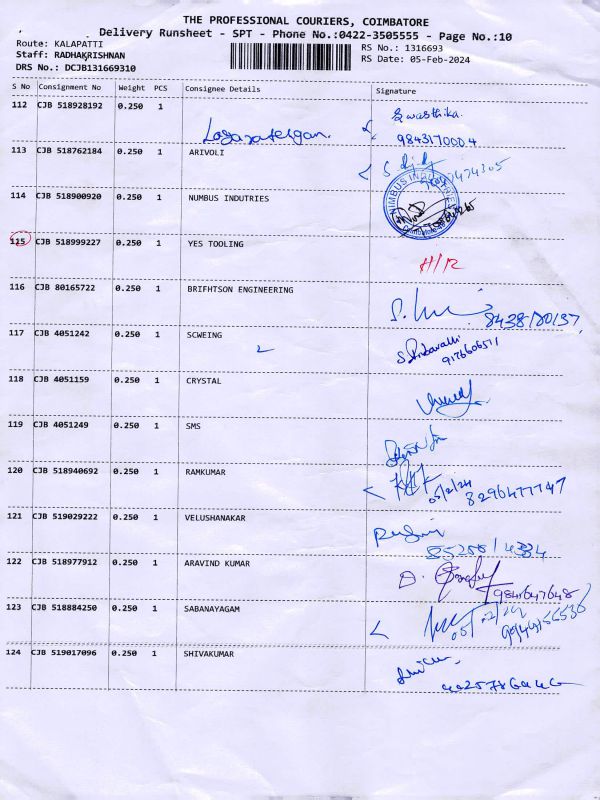 THE PROFESSIONAL COURIERS, COIMBATORE
Delivery Runsheet - SPT - Phone No.:0422-3505555 - Page No.:10
Route: KALAPATTI
Staff: RADHAKRISHNAN
DRS No.: DCJB131669310
RS No.: 1316693
RS Date: 05-Feb-2024
S No Consignment No Weight PCS Consignee Details Signature
112 CJB 518928192 0.250 1 Swasthika.
9843170004
113 CJB 518762184 0.250 1 ARIVOLI
114 CJB 518900920 0.250 1 NUMBUS INDUTRIES
NIMBUS INDUSTRIES
Coimbatore
115 CJB 518999227 0.250 1 YES TOOLING H/R
116 CJB 80165722 0.250 1 BRIFHTSON ENGINEERING
8438180137
117 CJB 4051242 0.250 1 SCWEING
9176606511
118 CJB 4051159 0.250 1 CRYSTAL
119 CJB 4051249 0.250 1 SMS
120 CJB 518940692 0.250 1 RAMKUMAR
05/2/24 8296477747
121 CJB 519029222 0.250 1 VELUSHANAKAR
122 CJB 518977912 0.250 1 ARAVIND KUMAR
9841647648
123 CJB 518884250 0.250 1 SABANAYAGAM
124 CJB 519017096 0.250 1 SHIVAKUMAR